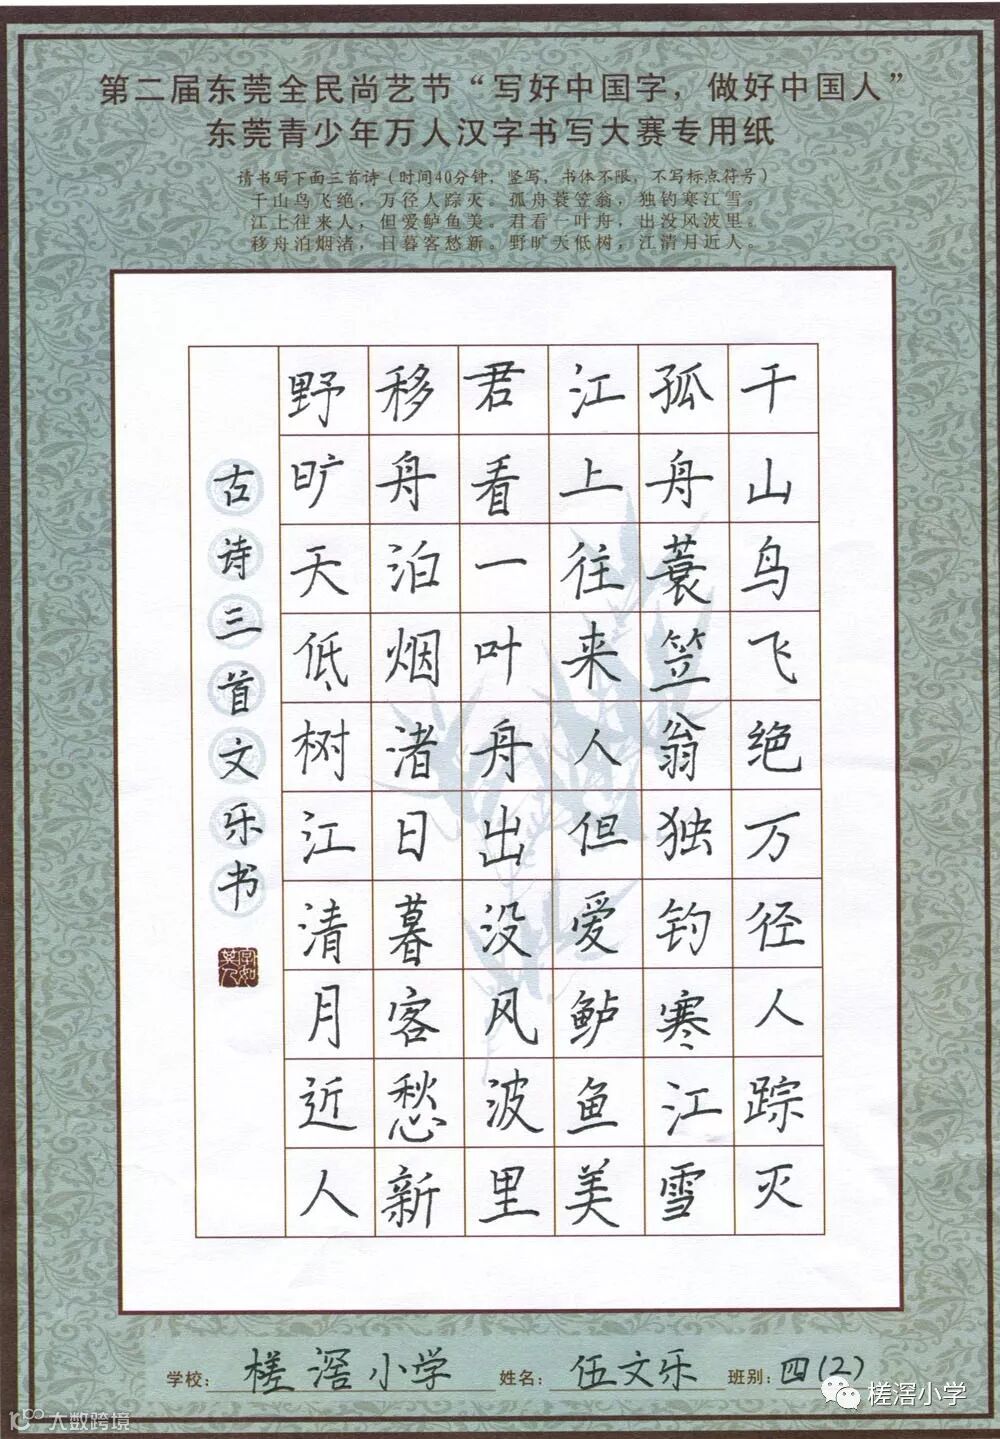 第二届东莞全民尚艺节“写好中国字，做好中国人”
东莞青少年万人汉字书写大赛专用纸
请书写下面三首诗（时间40分钟，竖写，书体不限，不写标点符号）
千山鸟飞绝，万径人踪灭。孤舟蓑笠翁，独钓寒江雪。
江上往来人，但爱鲈鱼美。君看一叶舟，出没风波里。
移舟泊烟渚，日暮客愁新。野旷天低树，江清月近人。
千山鸟飞绝万径人踪灭
孤舟蓑笠翁独钓寒江雪
江上往来人但爱鲈鱼美
君看一叶舟出没风波里
移舟泊烟渚日暮客愁新
野旷天低树江清月近人
古诗三首文乐书
学校：槎滘小学 姓名：伍文乐 班别：四(2)
槎滘小学
大数跨境